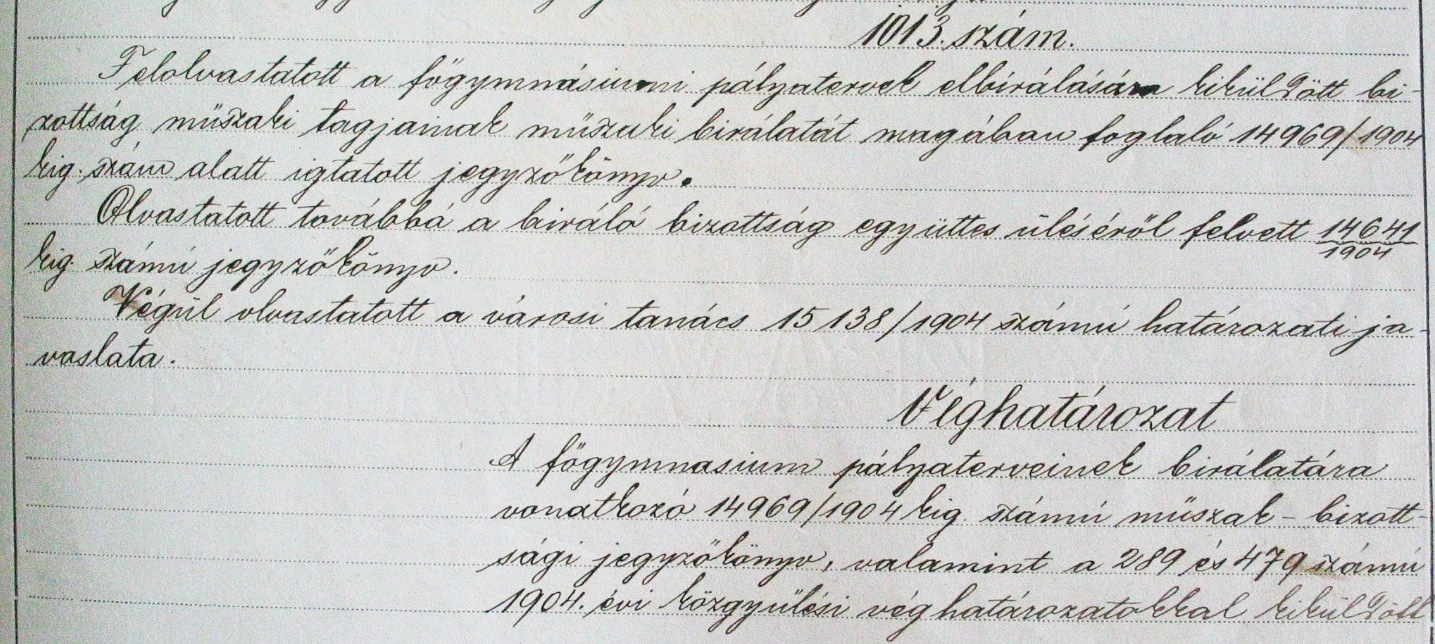 1013. szám.
Felolvastatott a főgymnásiumi pályatervek elbirálására kiküldött bi-
zottság műszaki tagjainak műszaki birálatát magában foglaló 14969/1904
kig. szám alatt igtatott jegyzőkönyv.
Olvastatott továbbá a biráló bizottság együttes üléséről felvett 14641/1904
kig számú jegyzőkönyv.
Végül olvastatott a városi tanács 15138/1904 számú határozati ja-
vaslata.
Véghatározat
A főgymnasium pályaterveinek birálatára
vonatkozó 14969/1904 kig számú műszak-bizott-
sági jegyzőkönyv, valamint a 289 és 479 számú
1904. évi közgyülési véghatározatokkal kiküldött